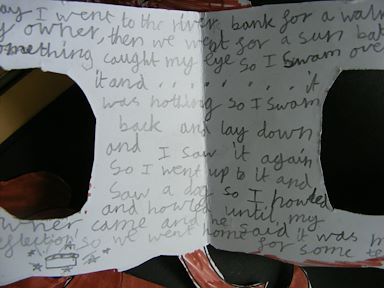 ay I went to the river bank for a walk
y owner, then we went for a sun bat
omething caught my eye so I swam ove
it and . . . . . . . . . it
was nothing so I swam
back and lay down
and I saw it again
So I went up to it and
Saw a dog so I howled
and howled until, my
wner came and he said it was m
eflection! so we went home for some te